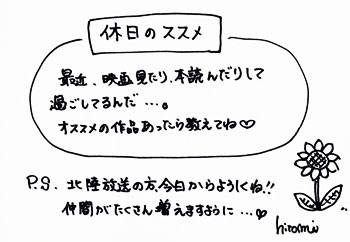 休日のススメ
最近、映画見たり、本読んだりして
過ごしてるんだ…。
オススメの作品あったら教えてね♡
P.S. 北陸放送の方、今日からよろしくね!!
仲間がたくさん増えますように…♡
hiromi